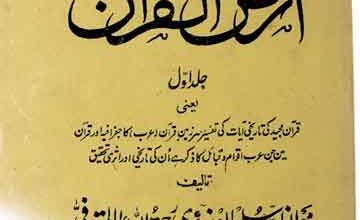 ارض القرآن
جلد اوّل
یعنی
قرآن مجید کی تاریخی آیات کی تفسیر سرزمین قرآن (عرب) کا جغرافیہ اور قرآن
میں جن عرب اقوام و قبائل کا ذکر ہے اُن کی تاریخی اور اثری تحقیق
تالیف